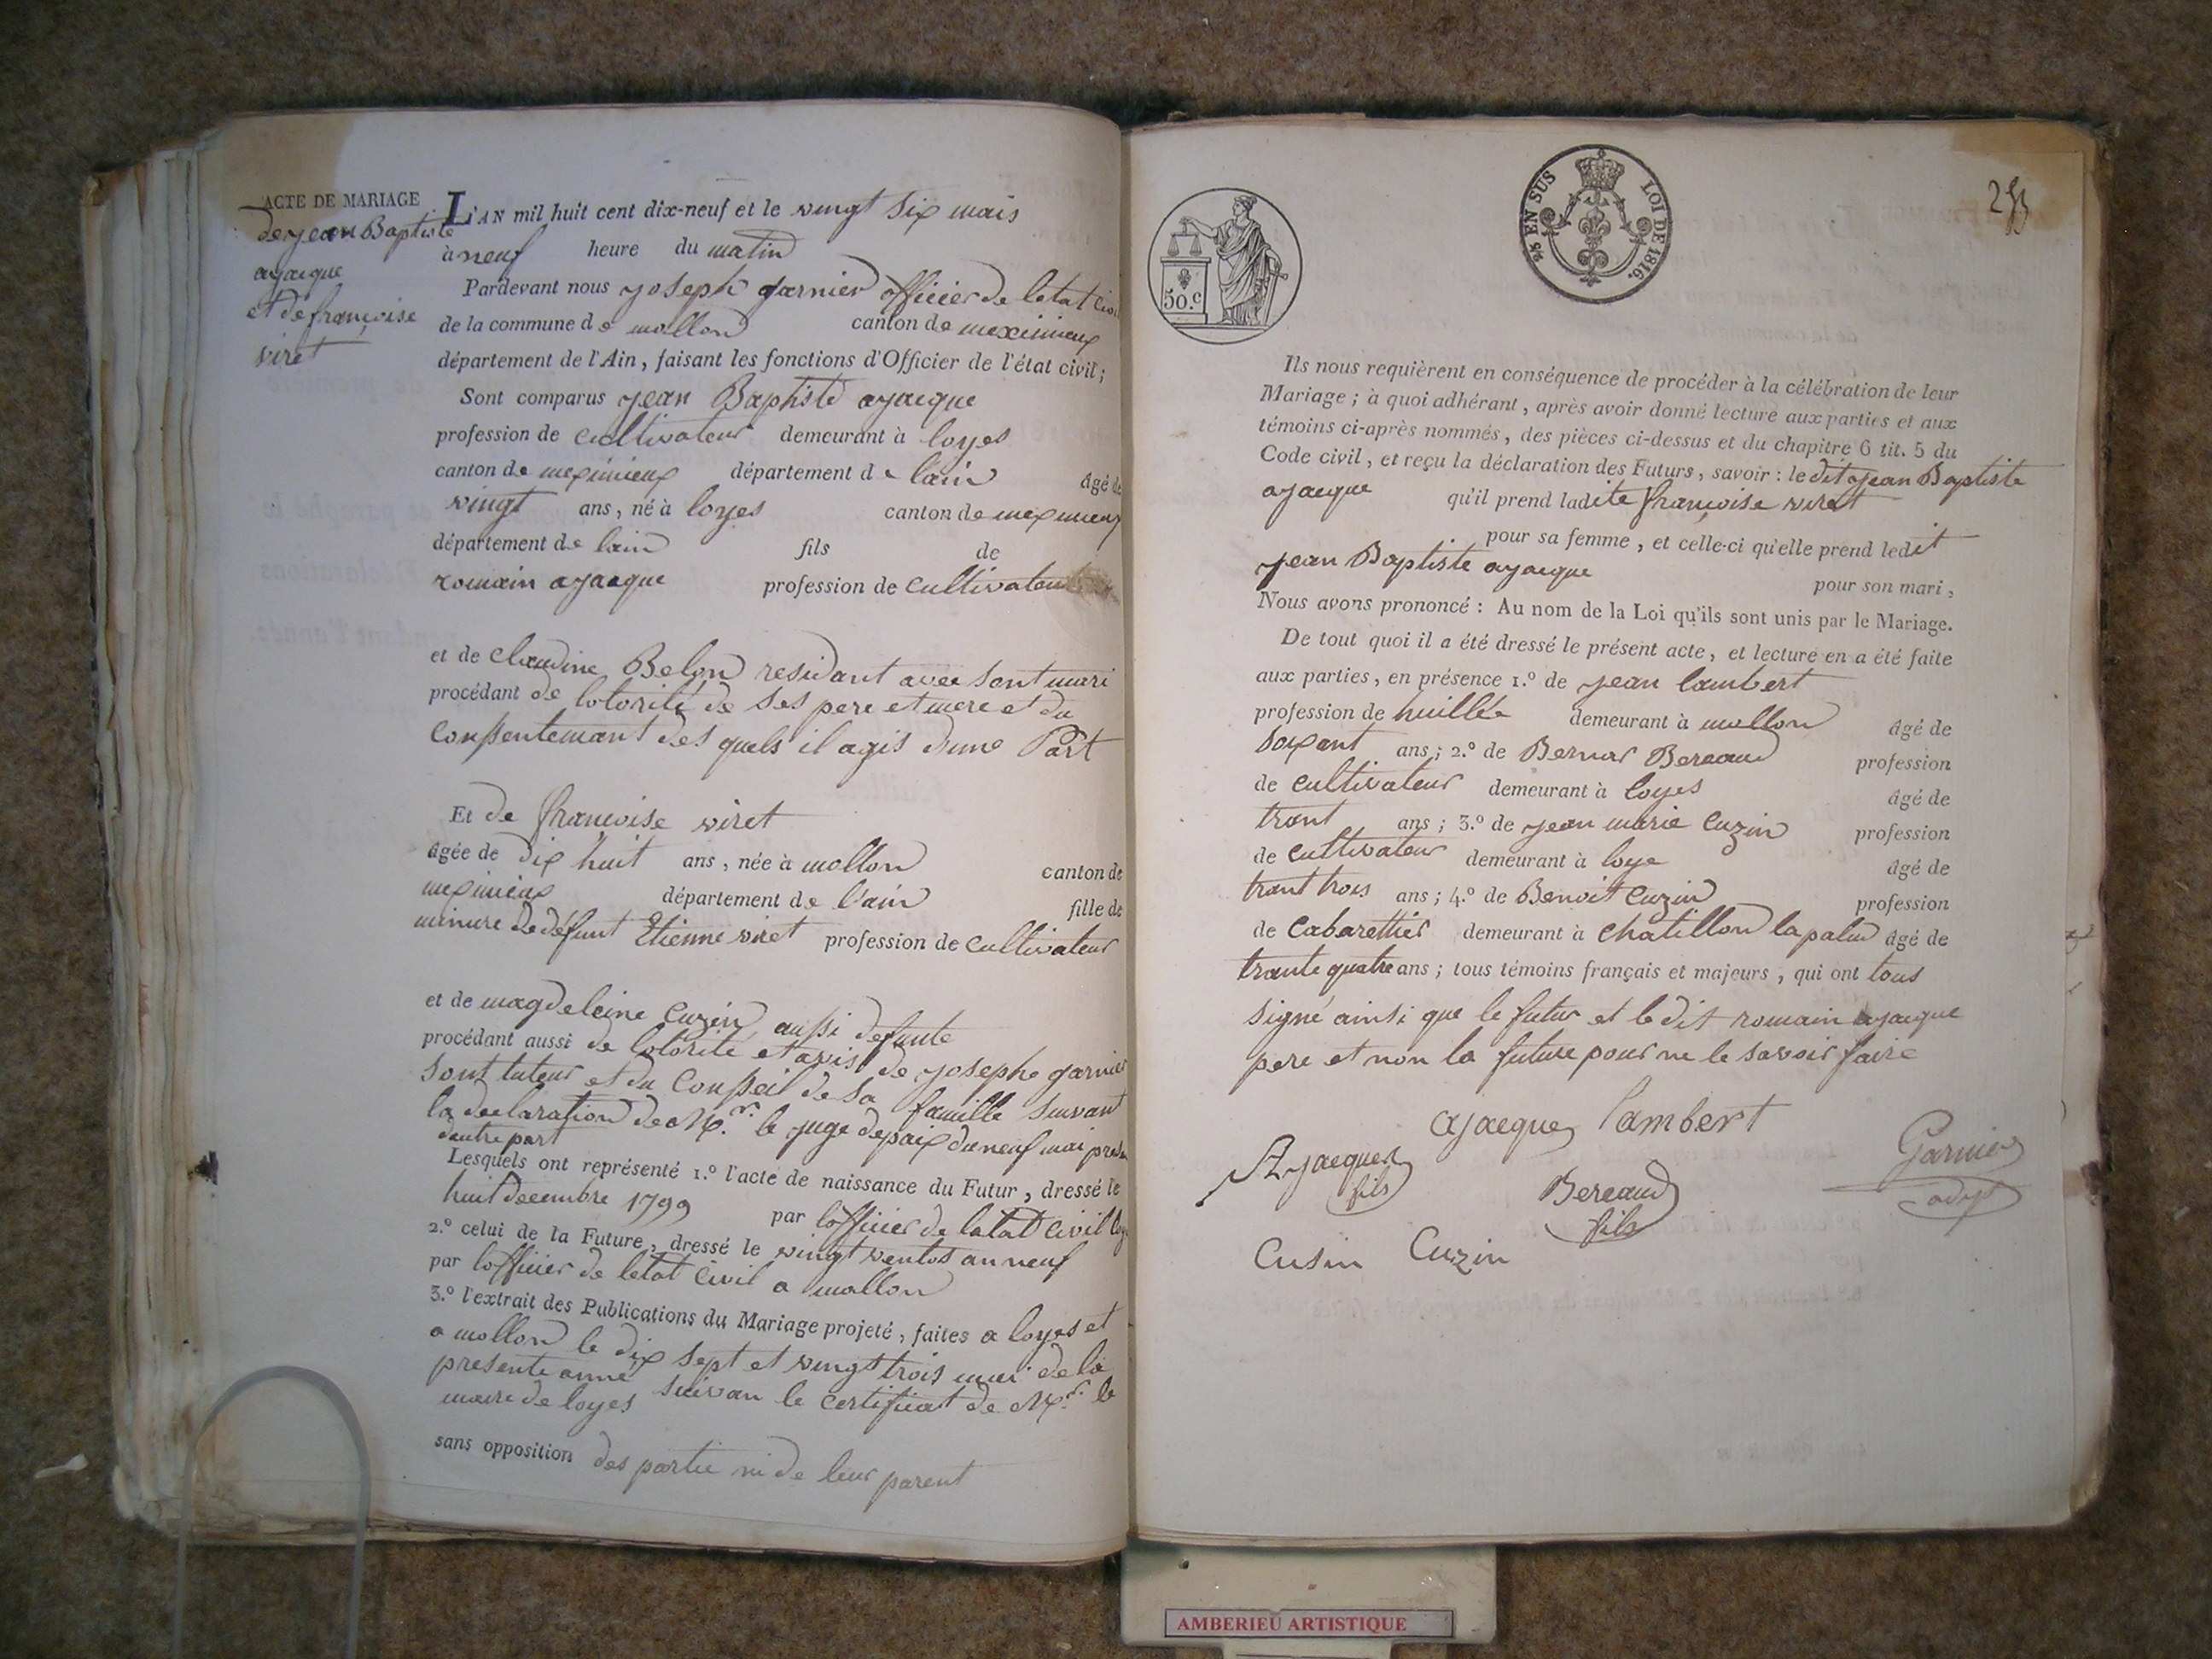 ACTE DE MARIAGE
de jean Baptiste
ajacque
et de françoise
viret
L'AN mil huit cent dix-neuf et le vingt six mais
à neuf heure du matin
Pardevant nous joseph garnier officier de letat civil
de la commune de mollon canton de meximieux
département de l'Ain, faisant les fonctions d'Officier de l'état civil;
Sont comparus jean Baptiste ajacque
profession de cultivateur demeurant à loyes
canton de meximieux département de lain âgé de
vingt ans, né à loyes canton de meximieux
département de lain fils de
romain ajacque profession de cultivateur
et de claudine Belon residant avec sont mari
procédant de lotorité de ses pere et mere et du
conssentemant des quels il agis dune Part
Et de françoise viret
âgée de dix huit ans, née à mollon canton de
meximieux département de l'ain fille de
minure de défunt Etienne viret profession de cultivateur
et de magdeleine Cuzin aussi defunte
procédant aussi de lotorité et avis de josephe garnier
sont tuteur et du Consseil de sa famille suivant
la declaration de Mr. le juge de paix du neuf mai
dautre part
Lesquels ont représenté 1.º l'acte de naissance du Futur, dressé le
huit decembre 1799 par lofficier de letat civil
2.º celui de la Future, dressé le vingt ventos an neuf
par lofficier de letat civil a mollon
3.º l'extrait des Publications du Mariage projeté, faites a loyes et
a mollon le dix sept et vingt trois mai de la
presente anné suivan le certificat de Mr. le
maire de loyes
sans opposition des partie ni de leur parent
50.c
EN SUS
LOI DE 1816.
Ils nous requièrent en conséquence de procéder à la célébration de leur
Mariage; à quoi adhérant, après avoir donné lecture aux parties et aux
témoins ci-après nommés, des pièces ci-dessus et du chapitre 6 tit. 5 du
Code civil, et reçu la déclaration des Futurs, savoir: le dit jean Baptiste
ajacque qu'il prend ladite françoise viret
pour sa femme, et celle-ci qu'elle prend ledit
jean Baptiste ajacque pour son mari,
Nous avons prononcé: Au nom de la Loi qu'ils sont unis par le Mariage.
De tout quoi il a été dressé le présent acte, et lecture en a été faite
aux parties, en présence 1.º de jean lambert
profession de huillée demeurant à mollon âgé de
soxant ans; 2.º de Bernar Bereaud profession
de cultivateur demeurant à loyes âgé de
trant ans; 3.º de jean marie Cuzin profession
de cultivateur demeurant à loye âgé de
trant trois ans; 4.º de Benoit Cuzin profession
de Cabarettier demeurant à chatillon la palud âgé de
trante quatre ans; tous témoins français et majeurs, qui ont tous
signé ainsi que le futur et le dit romain ajacque
pere et non la future pour ne le savoir faire
ajacque lambert
Ajacque
fils
Bereaud
fils
Garnier
adjt
Cusin Cuzin
AMBERIEU ARTISTIQUE